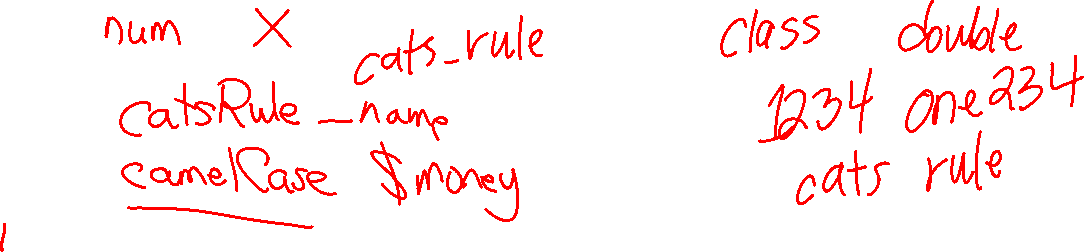 num X
cats_rule
catsRule _name
camelCase $money
class double
1234 one234
cats rule